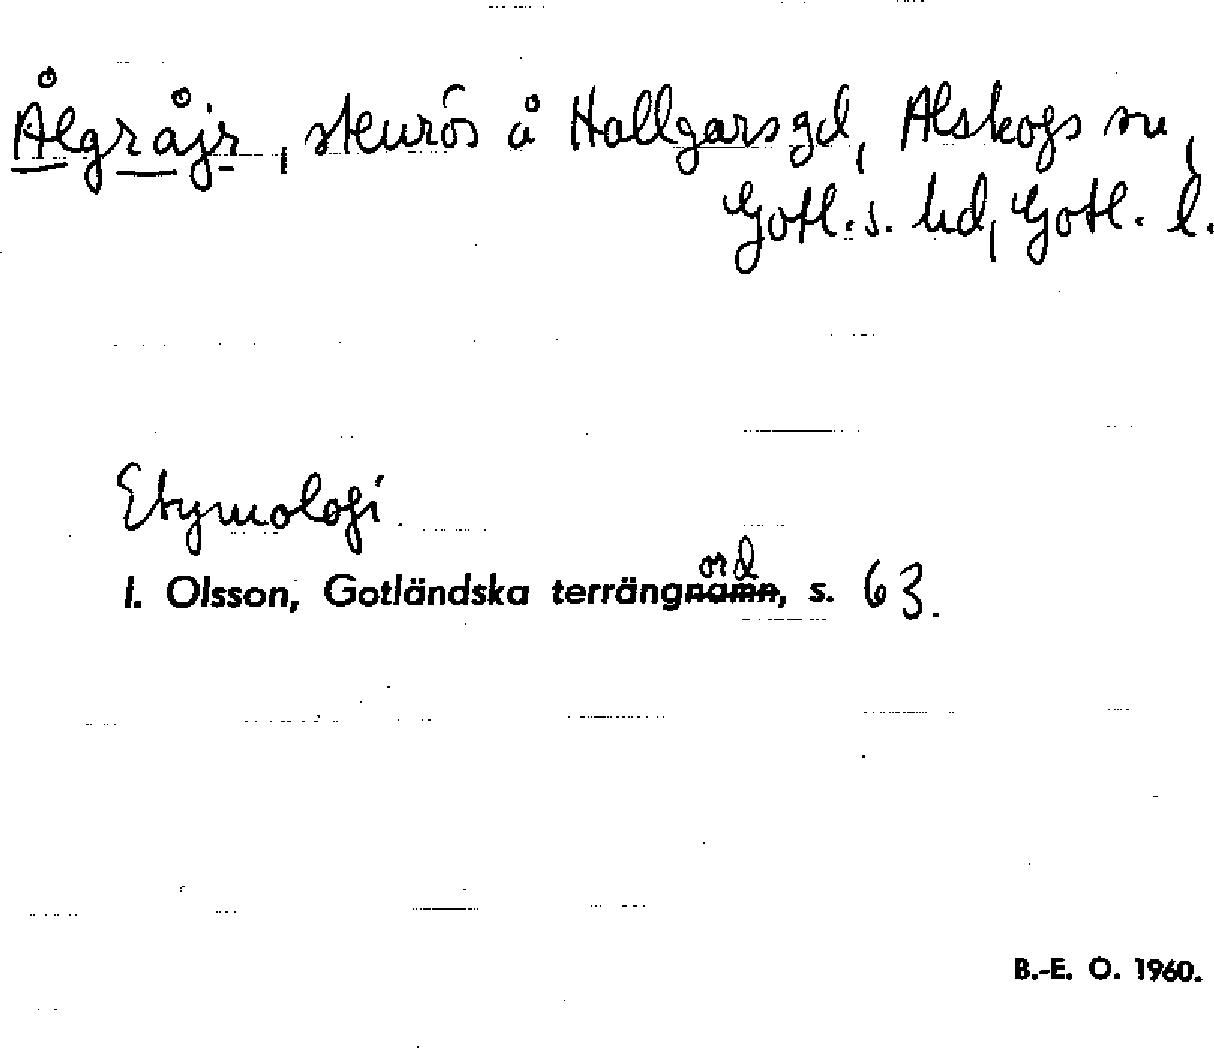 Ålgråjr, stenrös å Hallgårs gd, Alskogs sn,
Gotl. s. hd, Gotl. l.
Etymologi
I. Olsson, Gotländska terrängnamn, s. 63.
ord
B.-E. O. 1960.